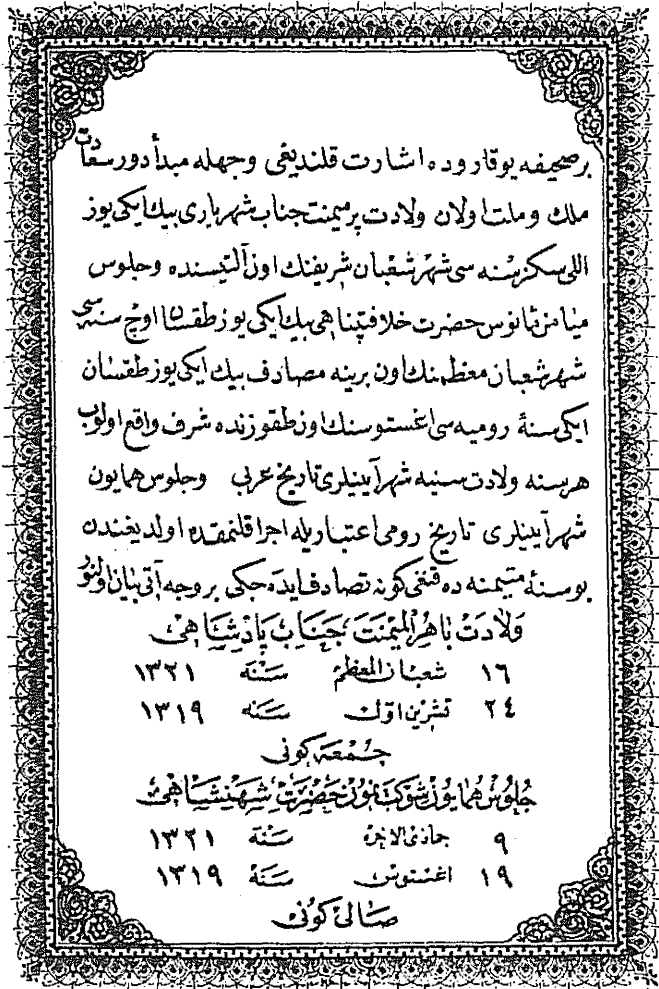 بر صحیفه یوقاروده اشارت قلندیغی وجهله مبدأ دور سعادت
ملك و ملت اولان ولادت پر میمنت جناب شهریاری بیك ایکی یوز
اللی سکز سنه سی شهر شعبان شریفنك اون آلتیسنده و جلوس
میامن مأنوس حضرت خلافتپناهی بیك ایکی یوز طقسان اوچ سنه سی
شهر شعبان معظمنك اون برینه مصادف بیك ایکی یوز طقسان
ایکی سنۀ رومیه سی اغستوسنك اون طقوزنده شرف واقع اولوب
هر سنه ولادت سنیه شهر آیینلری تاریخ عربی و جلوس همایون
شهر آیینلری تاریخ رومی اعتباریله اجرا قلنمقده اولدیغندن
بو سنۀ متیمنه ده قنغی کونه تصادف ایده جکی بر وجه آتی بیان اولنور
ولادت باهر المیمنت جناب پادشاهی
١٦ شعبان المعظم سنه ١٣٢١
٢٤ تشرین اول سنه ١٣١٩
جمعه کونی
جلوس همایون شوکت نمون حضرت شهنشاهی
٩ جماذی الاخره سنه ١٣٢١
١٩ اغستوس سنه ١٣١٩
صالی کونی